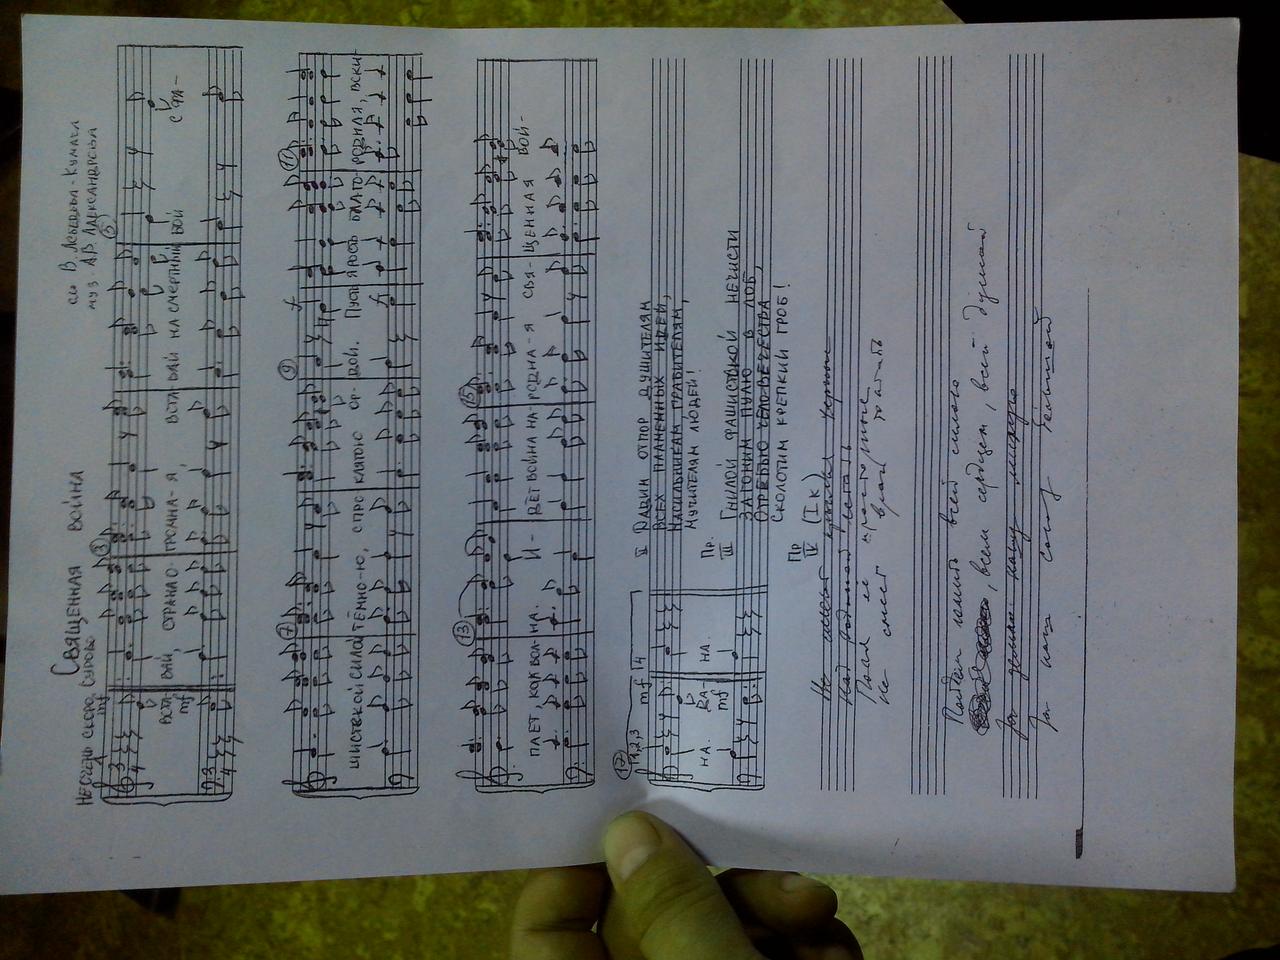 Священная война
сл В. Лебедева-Кумача
муз А.В. Александрова
Не очень скоро, Сурово
mf
3
6
Вста- вай, страна о- громна- я, вста- вай на смертный бой с фа-
mf
7
9
11
шистской силой тёмно-ю, с про клятою ор- дой. Пусть ярость благо- родная, вски-
13
15
пает, как вол- на. И- дёт война на- родна- я свя- щенная вой-
17
1,2,3
mf
4
на. Ва- на.
mf
II Дадим отпор душителям
Всех пламенных идей,
Насильникам, грабителям,
Мучителям людей!
Пр.
III Гнилой фашистской нечисти
Загоним пулю в лоб,
Отребью человечества
Сколотим крепкий гроб!
Пр (I к)
IV Не смеют крылья чёрные
Над Родиной летать
Поля её просторные
Не смеет враг топтать
Пойдём ломить всей силою
всем сердцем, всей душой
За землю нашу милую
За наш союз большой